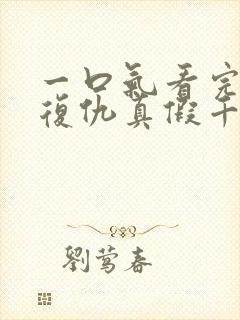 一口氣看完
復仇真假千
劉鶯春